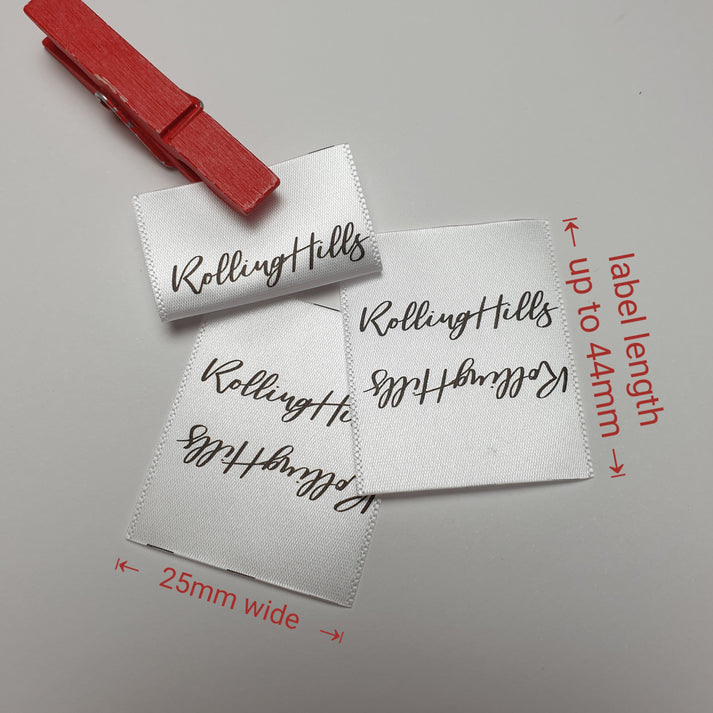 RollingHills
RollingHills
RollingHills
RollingHills
RollingHills
label length
up to 44mm
25mm wide